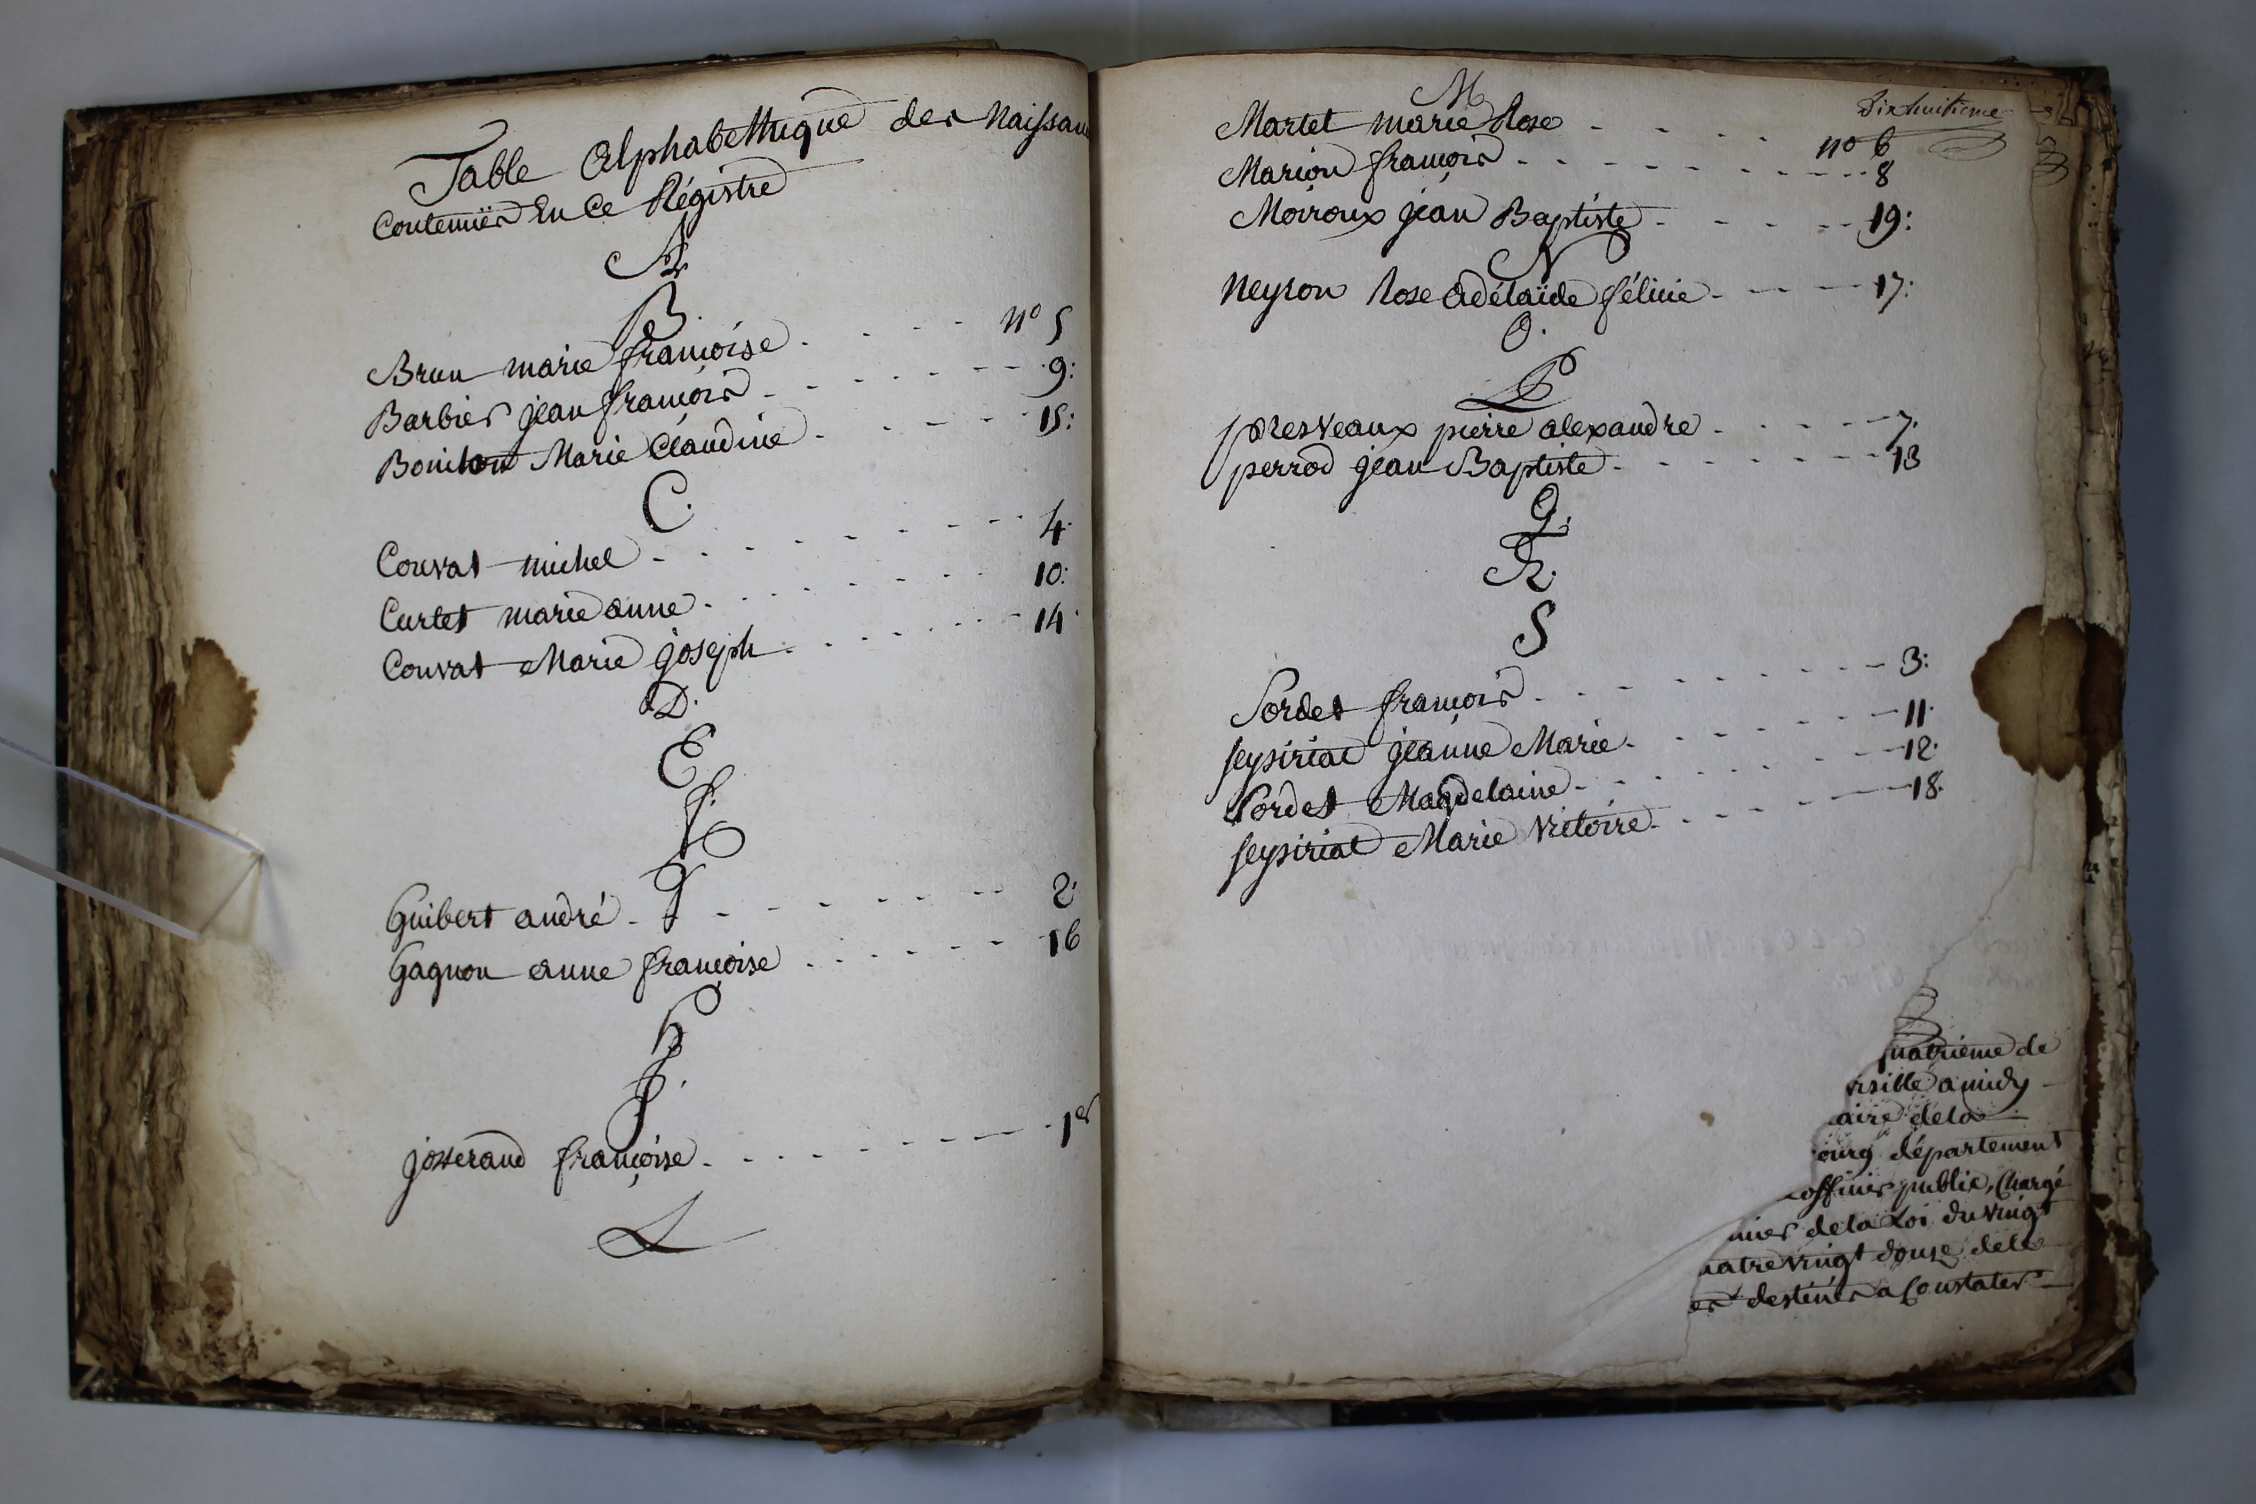 Table Alphabethique des Naissan
Contenues En Ce Régistre
A
B.
Brun marie françoise . - - - n° 5
Barbier jean françois - - - - - 9:
Bouillon Marie Claudine - - - - 15:
C.
Couvat michel - - - - - 4.
Curtet marie anne - - - - - 10:
Couvat Marie joseph - - - - - 14.
D.
E
f.
g
Guibert andré - - - - - 2.
Gagnon anne françoise - - - - - 16
h
J.
josserand françoise - - - - - 1er
L
Dix huitieme
M
Martet marie Rose - - - - n° 6
Marion françois - - - - - 8
Moiroux jean Baptiste - - - - 19:
N
Neyron Rose adélaïde félicie - - - 17:
O.
P
presveaux pierre alexandre - - - - 7.
perrod jean Baptiste - - - - - 13
Q.
R.
S
Sordet françois - - - - - 3:
seysiriat jeanne Marie - - - - - 11.
Sordet Magdelaine - - - - - 12.
seysiriat Marie Victoire - - - - - 18.
uatrieme de
rsille a midy
aire de la
ourg département
officier public, Chargé
mier de la Loi du vingt
uatre vingt douze de le
er destinés a Constater